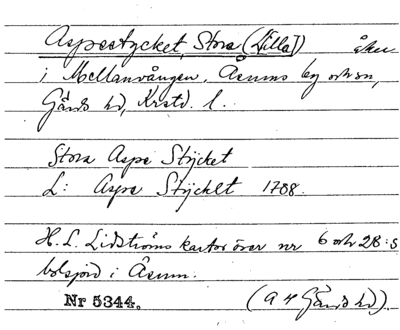 Aspestycket, Stora (Lilla) åker
i Mellanvången, Åsums by och sn,
Gärds hd, Krstd. l.
Stora Aspe Stÿcket
L: Aspe Stÿcket 1788.
H. L. Lidströms kartor över nr 6 och 28:s
bolsjord i Åsum.
Nr 5344. (A 4 Gärds hd).